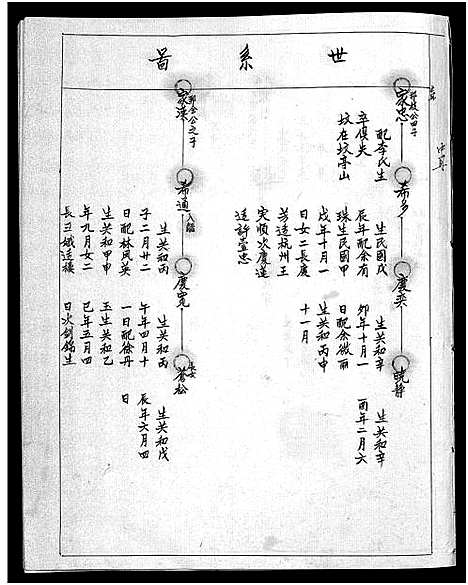 世系圖
邦枝公四子
家忠
配李氏生
卒俱失
坟在坟亭山
希多
生民國戊
辰年配余有
珠生民國甲
戌年十月一
日女二長慶
芳适杭州王
宋順次慶蓮
适許萱忠
慶奕
生共和辛
卯年十月一
日配余微丽
生共和丙申
十一月
晓静
生共和辛
酉年二月六
邦全公之子
家漢
希通
入繼
生共和丙
子二月廿二
日配林凤英
生共和甲申
年九月女二
長玉娥适横
慶寬
生共和丙
午年四月十
一日配徐丹
玉生共和乙
巳年五月四
日次銘錦生
長女
蒼松
生共和戊
辰年六月四
日